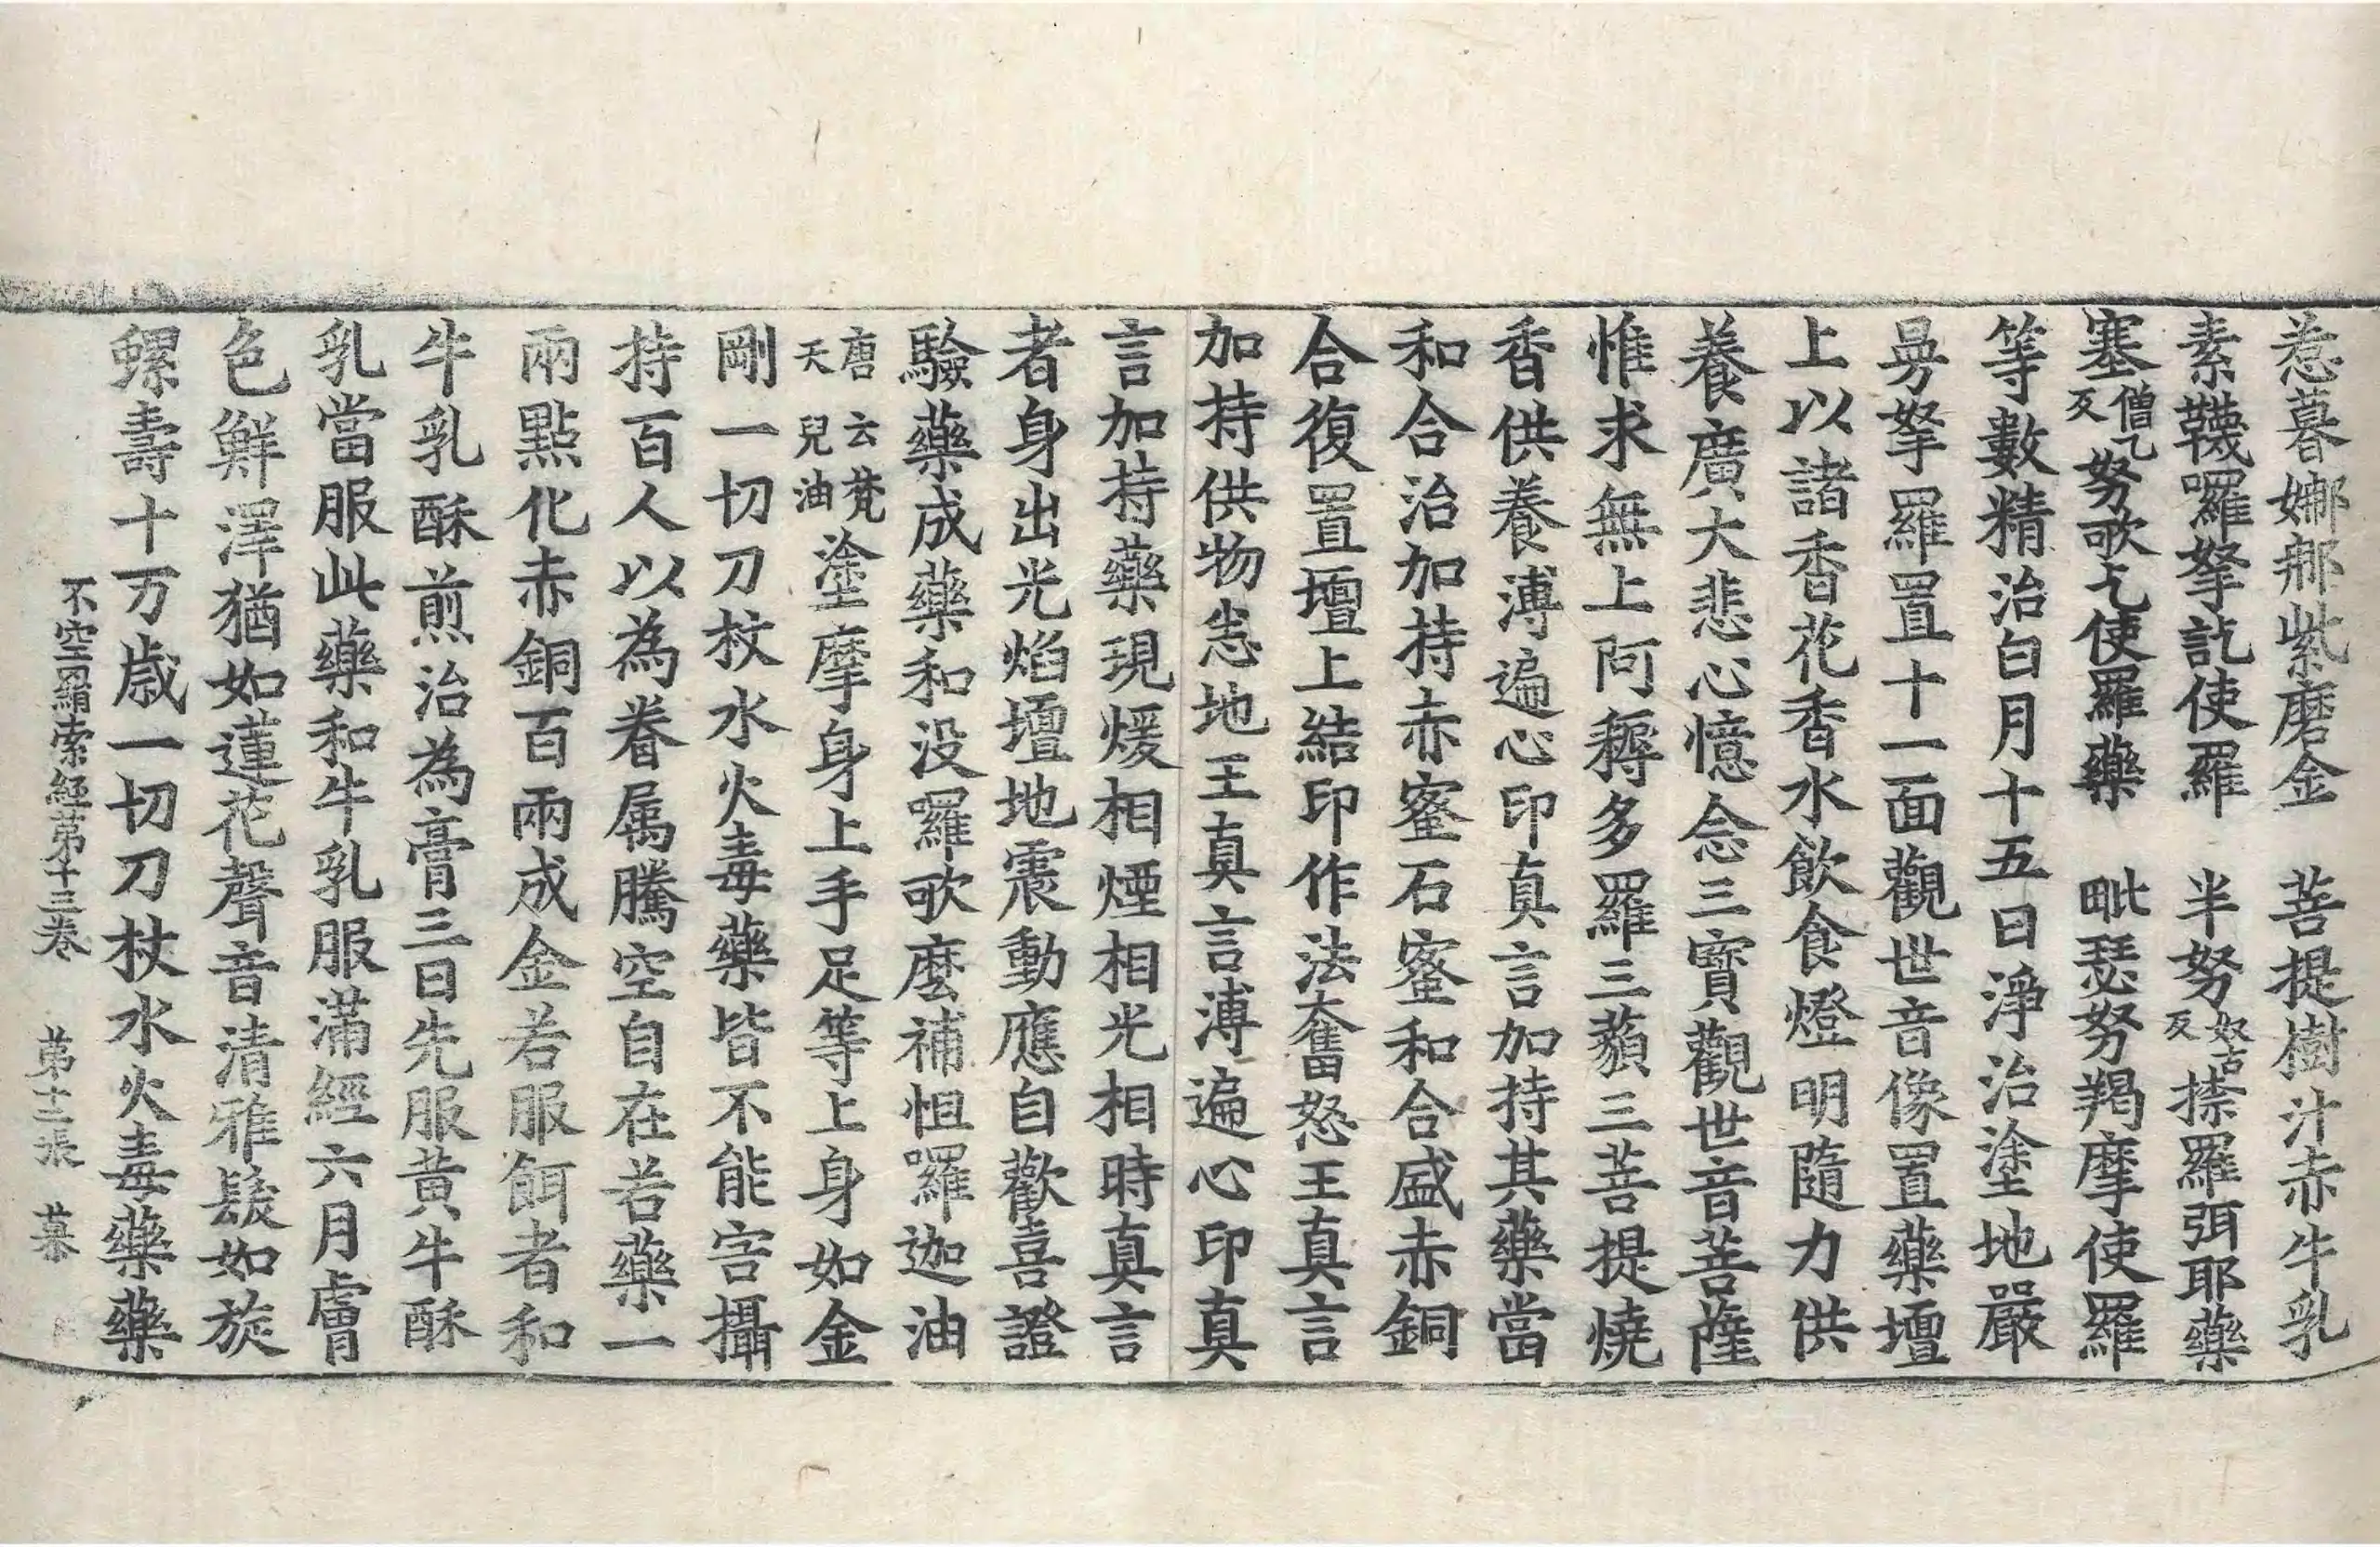 惹暮娜㖠紫磨金　菩提樹汁赤牛乳
素韈囉拏訖使羅　半努奴古反捺羅弭耶藥
塞僧乙反努歌乞使羅藥　毗瑟努羯摩使羅
等數精治白月十五日淨治塗地嚴
曼拏羅置十一面觀世音像置藥壇
上以諸香花香水飲食燈明隨力供
養廣大悲心憶念三寶觀世音菩薩
惟求無上阿耨多羅三藐三菩提燒
香供養溥遍心印真言加持其藥當
和合治加持赤蜜石蜜和合盛赤銅
合復置壇上結印作法奮怒王真言
加持供物恙地王真言溥遍心印真
言加持藥現煖相煙相光相時真言
者身出光焰壇地震動應自歡喜證
驗藥成藥和没囉歌麼補怛囉迦油
唐云梵天兒油塗摩身上手足等上身如金
剛一切刀杖水火毒藥皆不能害攝
持百人以為眷属騰空自在若藥一
兩點化赤銅百兩成金若服餌者和
牛乳酥煎治為膏三日先服黃牛酥
乳當服此藥和牛乳服滿經六月膚
色鮮澤猶如蓮花聲音清雅髮如旋
螺壽十万歲一切刀杖水火毒藥藥
不空羂索經第十三卷　第十二張　暮